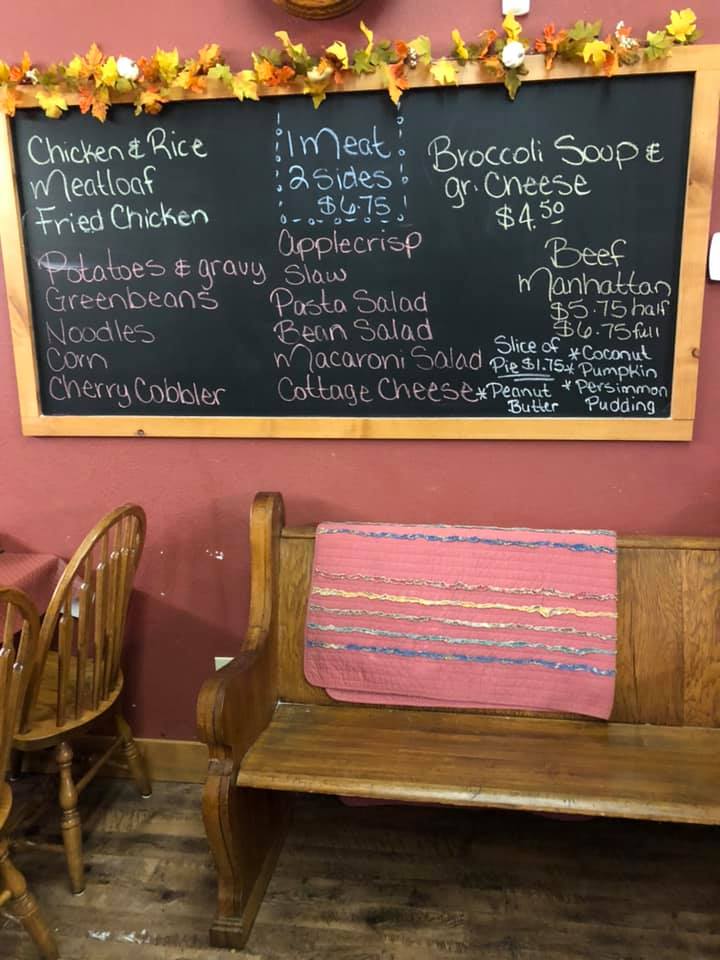 Chicken & Rice
Meatloaf
Fried Chicken
Potatoes & gravy
Greenbeans
Noodles
Corn
Cherry Cobbler
1 Meat
2 Sides
$6.75
Applecrisp
Slaw
Pasta Salad
Bean Salad
Macaroni Salad
Cottage Cheese
Broccoli Soup &
gr. Cheese
$4.50
Beef
Manhattan
$5.75 half
$6.75 full
Slice of
Pie $1.75
*Peanut
Butter
*Coconut
*Pumpkin
*Persimmon
Pudding